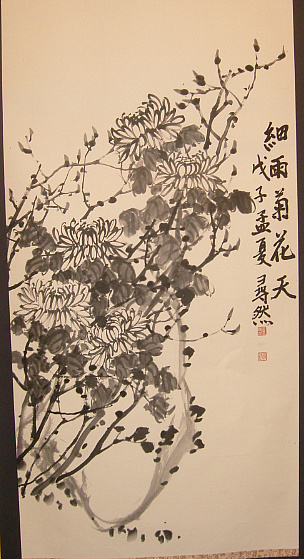 細雨菊花天
戊子孟夏尋然